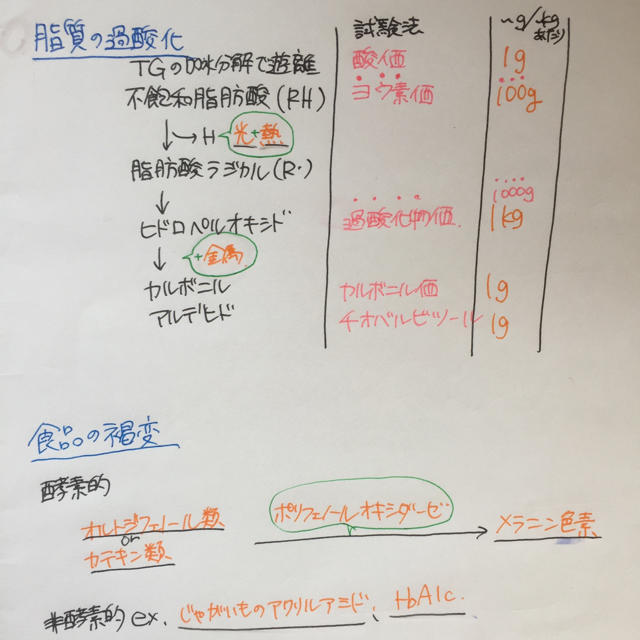 脂質の過酸化
試験法
〜g/kgあたり
TGの加水分解で遊離
酸価
1g
不飽和脂肪酸(RH)
ヨウ素価
100g
H 光+熱
脂肪酸ラジカル(R・)
1000g
ヒドロペルオキシド
過酸化物価
1kg
+金属
カルボニル
カルボニル価
1g
アルデヒド
チオバルビツール
1g
食品の褐変
酵素的
オルトジフェノール類
or
カテキン類
ポリフェノールオキシダーゼ
メラニン色素
非酵素的 ex. じゃがいものアクリルアミド、HbA1c.